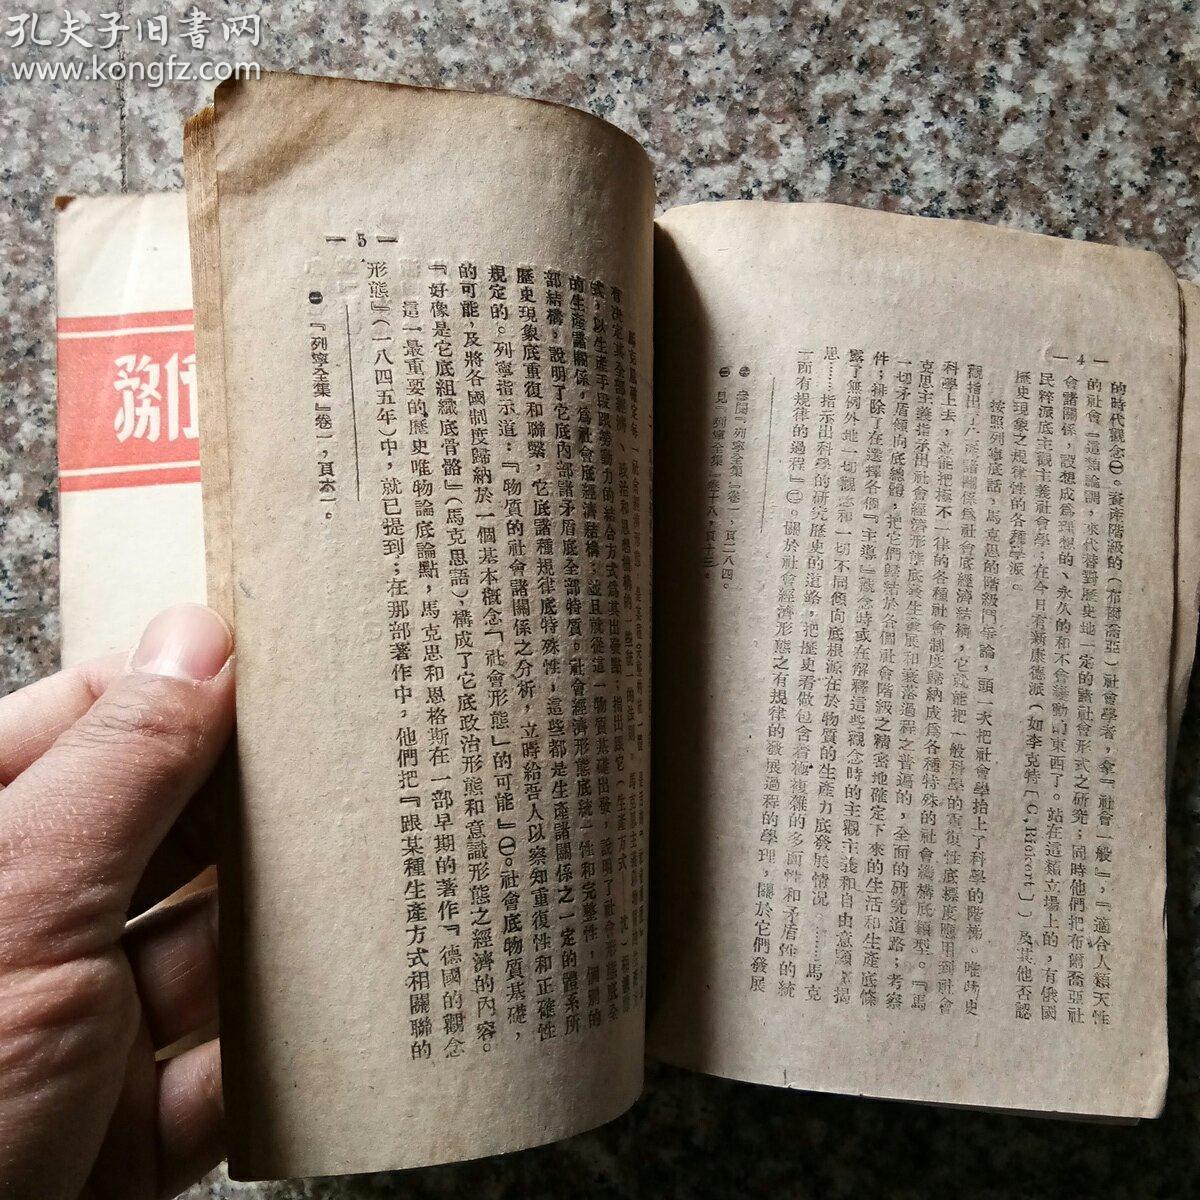 孔夫子旧書网
www.kongfz.com
— 4 —
的時代觀念㊀。資產階級的(布爾喬亞)社會學者,拿『社會一般』,『適合人類天性
的社會』這類論調,來代替對歷史地一定的諸社會形式之研究;同時他們把布爾喬亞社
會諸關係,設想成爲理想的、永久的和不會變動的東西了。站在這類立場上的,有俄國
民粹派底主觀主義社會學;在今日有新康德派(如李克特[C, Rickert])及其他否認
歷史現象之規律性的各種學派。
按照列寧底話,馬克思的階級鬥爭論,頭一次把社會學抬上了科學的階梯。唯物史
觀指出
諸關係爲社會底經濟結構,它就能把一般科學的重復性底標度應用到社會
科學上去,並能把極不一律的各種社會制度歸納成爲各種特殊的社會結構底類型。『馬
克思主義指示出社會經濟形態底發生發展和衰落過程之普遍的,全面的研究道路;考察
一切矛盾傾向底總體,把它們歸結於各個社會階級之精密地確定下來的生活和生產底條
件;排除了在選擇各個『主導』觀念時或在解釋這些觀念時的主觀主義和自由意願
揭
露了無例外地一切觀念和一切不同傾向底根源在於物質的生產力底發展情况。……馬克
思……指示出科學的研究歷史的道路,把歷史看做包含着極複雜的多面性和矛盾性的統
一而有規律的過程』㊁。關於社會經濟形態之有規律的發展過程的學理,關於它們發展
㊀ 參閱『列寧全集』卷一,頁二八四。
㊁ 見『列寧全集』卷十八,頁十三。
— 5 —
馬克思確定每一社會經濟形態,是
式,以生產手段跟勞動力的結合方式爲其出發點,指出跟它(生產方式——沈)相適應
的生產諸關係,爲社會底經濟結構;並且就從這一物質基礎出發,說明了社會形態底全
部結構,說明了它底內部諸矛盾底全部特質。社會經濟形態底統一性和完整性,個別的
歷史現象底重復和聯繫,它底諸種規律底特殊性,這些都是生產諸關係之一定的體系所
規定的。列寧指示道:『物質的社會諸關係之分析,立時給吿人以察知重復性和正確性
的可能,及將各國制度歸納於一個基本概念『社會形態』的可能』㊀。社會底物質基礎,
『好像是它底組織底骨骼』(馬克思語),構成了它底政治形態和意識形態之經濟的內容。
這一最重要的歷史唯物論底論點,馬克思和恩格斯在一部早期的著作『德國的觀念
形態』(一八四五年)中,就已提到;在那部著作中,他們把『跟某種生產方式相關聯的
㊀ 『列寧全集』卷一,頁六一。
務